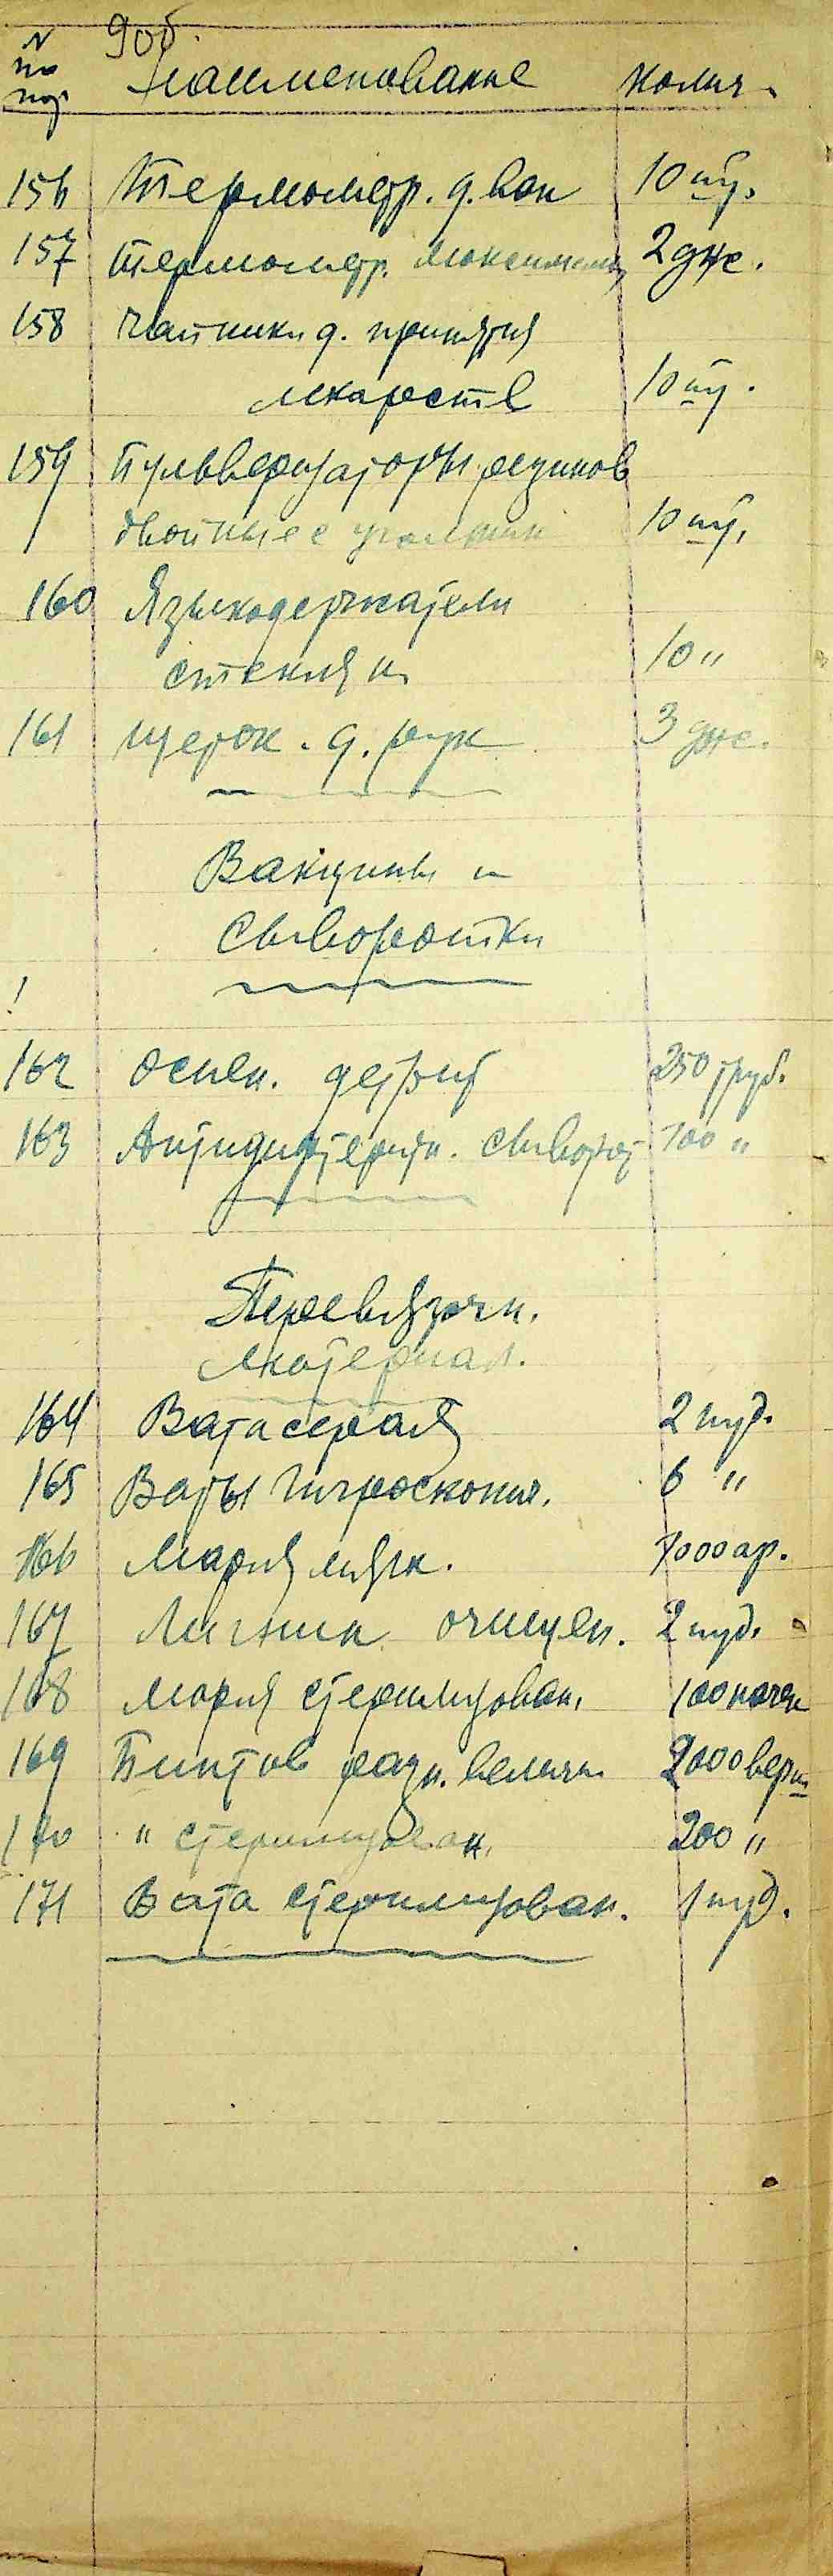 90б.
№ по пор. Наименование колич.
156 Термометр. д. ван 10 шт.
157 Термометр. максимальн 2 дюж.
158 Чайники д. принятия
лекарств 10 шт.
159 Пульверизаторы резинов
двойные с 10 шт.
160 Языкодержатели
стеклян. 10 "
161 Щеток. д. рук 3 дюж.
Вакцины и
Сыворотки
!
162 Оспен. детрит 250 труб.
163 Антидифтерийн. сыворот 100 "
Перевязочн.
материал.
164 Вата серая 2 пуд.
165 Ваты гигроскопич. 6 "
166 Марля мягк. 7000 ар.
167 Лигнин очищен. 2 пуд.
168 Марля стерилизован. 100 пачек
169 Бинтов разн. величин 2000 верш
170 " стерилизован. 200 "
171 Вата стерилизован. 1 пуд.